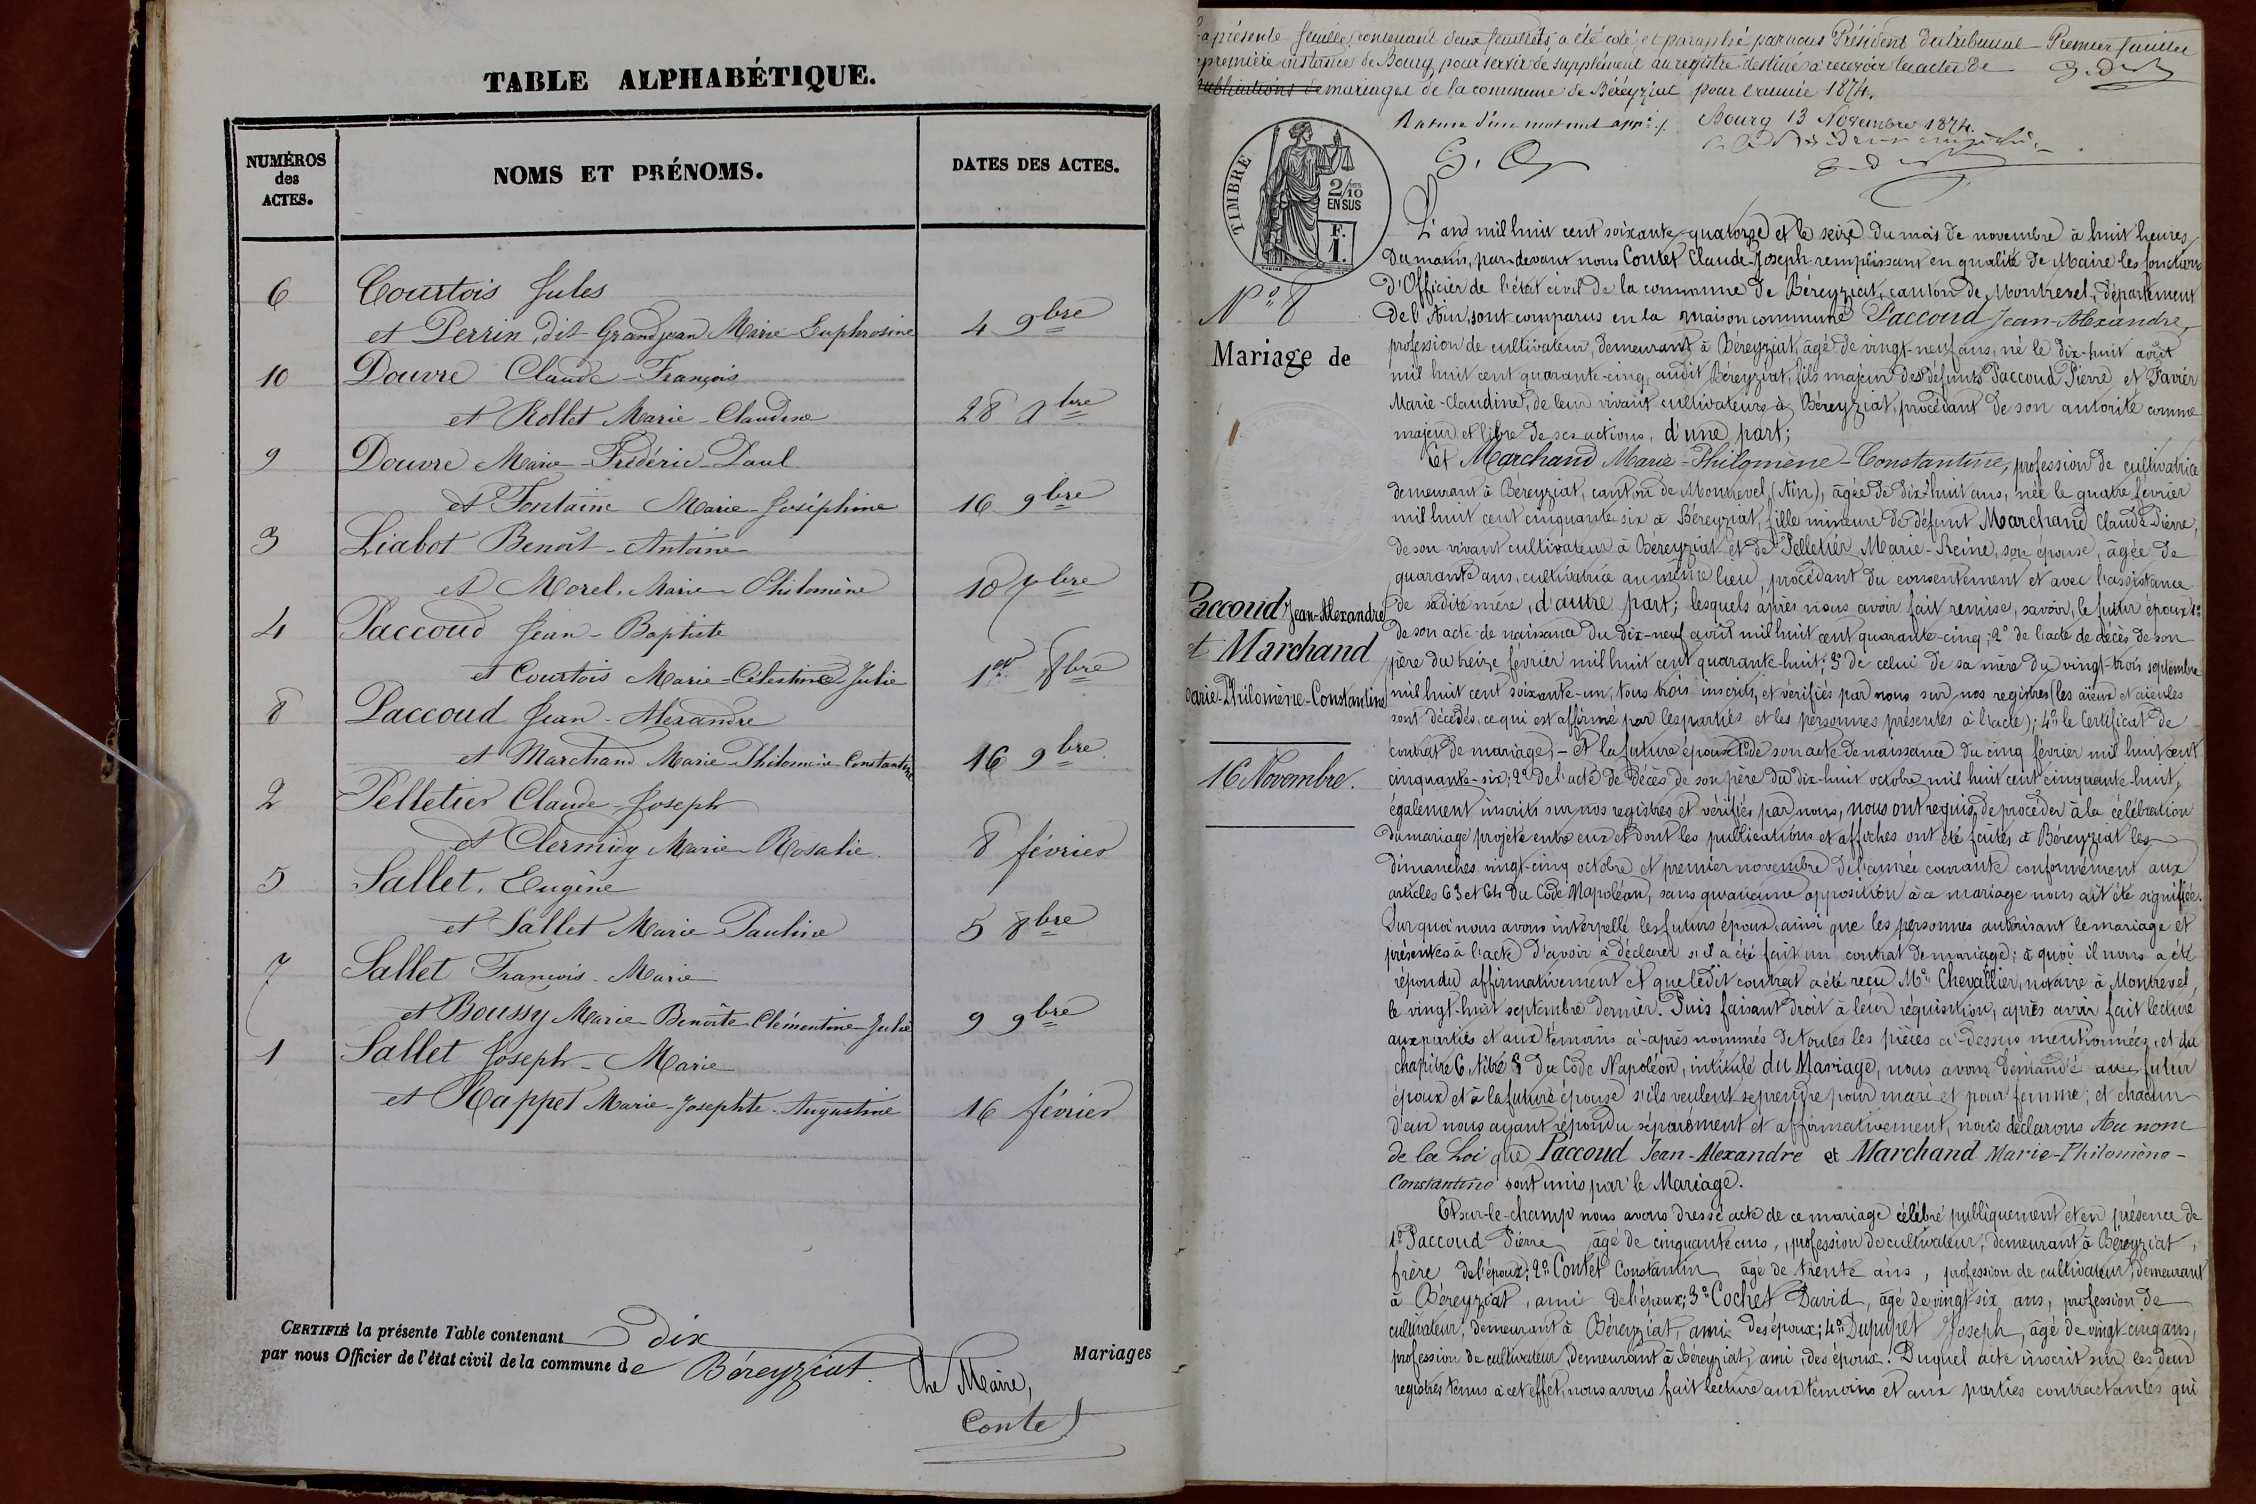 TABLE ALPHABÉTIQUE.
NUMÉROS
des
ACTES.
NOMS ET PRÉNOMS.
DATES DES ACTES.
6 Courtois Jules
et Perrin, dit Grandjean Marie-Euphrosine 4 9bre
10 Douvre Claude-François
et Rollet Marie-Claudine 28
9 Douvre Marie-Frédéric-Paul
et Fontaine Marie-Joséphine 16 9bre
3 Liabot Benoît-Antoine
et Morel Marie-Philomène 10 7bre
4 Paccoud Jean-Baptiste
et Courtois Marie-Célestine-Julie 1er 8bre
8 Paccoud Jean-Alexandre
et Marchand Marie-Philomène-Constantine 16 9bre
2 Pelletier Claude-Joseph
et Clermidy Marie-Rosalie. 8 février
5 Sallet, Eugène
et Sallet Marie-Pauline 5 8bre
7 Sallet François-Marie
et Boussy Marie-Benoîte-Clémentine-Julie 9 9bre
1 Sallet Joseph-Marie
et Rappet Marie-Josephte-Augustine 16 février
CERTIFIÉ la présente Table contenant dix Mariages
par nous Officier de l'état civil de la commune de Béreyziat.
Le Maire,
Contet
La présente feuille, contenant deux feuillets, a été coté et paraphé par nous Président du tribunal Premier feuillet
de première instance de Bourg, pour servir de supplément au registre destiné à recevoir les actes de
publications de mariages de la commune de Béréyziat pour l'année 1874.
Rature d'un mot nul Bourg 13 Novembre 1874.
TIMBRE
2/10
EN SUS
F.
1.
N° 8
Mariage de
Paccoud Jean-Alexandre
et Marchand
Marie-Philomène-Constantine
16 Novembre.
L'an mil huit cent soixante-quatorze et le seize du mois de novembre à huit heures
du matin, par-devant nous Contet Claude-Joseph remplissant en qualité de Maire les fonctions
d'Officier de l'état civil de la commune de Béreyziat, canton de Montrevel, département
de l'Ain, sont comparus en la maison commune Paccoud Jean-Alexandre,
profession de cultivateur, demeurant à Béreyziat, âgé de vingt-neuf ans, né le dix-huit août
mil huit cent quarante-cinq, audit Béreyziat, fils majeur des défunts Paccoud Pierre et Favier
Marie-Claudine, de leur vivant cultivateurs à Béreyziat, procédant de son autorité comme
majeur et libre de ses actions, d'une part;
Et Marchand Marie-Philomène-Constantine, profession de cultivatrice
demeurant à Béreyziat, canton de Montrevel, (Ain), âgée de dix-huit ans, née le quatre février
mil huit cent cinquante-six à Béreyziat, fille mineure de défunt Marchand Claude-Pierre,
de son vivant cultivateur à Béreyziat et de Pelletier Marie-Reine, son épouse, âgée de
quarante ans, cultivatrice au même lieu, procédant du consentement et avec l'assistance
de sadite mère, d'autre part; lesquels après nous avoir fait remise, savoir, le futur époux 1°
de son acte de naissance du dix-neuf août mil huit cent quarante-cinq; 2° de l'acte de décès de son
père du treize février mil huit cent quarante-huit; 3° de celui de sa mère du vingt-trois septembre
mil huit cent soixante-un, tous trois inscrits, et vérifiés par nous sur nos registres (les aïeux et aïeules
sont décédés, ce qui est affirmé par les parties et les personnes présentes à l'acte); 4° le Certificat de
contrat de mariage; - et la future épouse 1° de son acte de naissance du cinq février mil huit cent
cinquante-six; 2° de l'acte de décès de son père du dix-huit octobre mil huit cent cinquante-huit,
également inscrits sur nos registres et vérifiés par nous, nous ont requis de procéder à la célébration
du mariage projeté entre eux et dont les publications et affiches ont été faites à Béreyziat les
dimanches vingt-cinq octobre et premier novembre de l'année courante conformément aux
articles 63 et 64 du Code Napoléon, sans qu'aucune opposition à ce mariage nous ait été signifiée.
Sur quoi nous avons interpellé les futurs époux, ainsi que les personnes autorisant le mariage et
présentes à l'acte d'avoir à déclarer s'il a été fait un contrat de mariage; à quoi il nous a été
répondu affirmativement et que ledit contrat a été reçu Me Chevallier, notaire à Montrevel,
le vingt-huit septembre dernier. Puis faisant droit à leur réquisition, après avoir fait lecture
aux parties et aux témoins ci-après nommés de toutes les pièces ci-dessus mentionnées, et du
chapitre 6, titre 5 du Code Napoléon, intitulé du Mariage, nous avons demandé au futur
époux et à la future épouse s'ils veulent se prendre pour mari et pour femme; et chacun
d'eux nous ayant répondu séparément et affirmativement, nous déclarons Au nom
de la Loi que Paccoud Jean-Alexandre et Marchand Marie-Philomène-
Constantine sont unis par le Mariage.
Et sur-le-champ nous avons dressé acte de ce mariage célébré publiquement et en présence de
1° Paccoud Pierre âgé de cinquante ans, profession de cultivateur, demeurant à Béreyziat,
frère de l'époux; 2° Contet Constantin, âgé de trente ans, profession de cultivateur, demeurant
à Béreyziat, ami de l'époux; 3° Cochet David, âgé de vingt-six ans, profession de
cultivateur, demeurant à Béreyziat, ami des époux; 4° Dupupet Joseph, âgé de vingt-cinq ans,
profession de cultivateur, demeurant à Béreyziat, ami des époux. Duquel acte inscrit sur les deux
registres tenus à cet effet, nous avons fait lecture aux témoins et aux parties contractantes qui